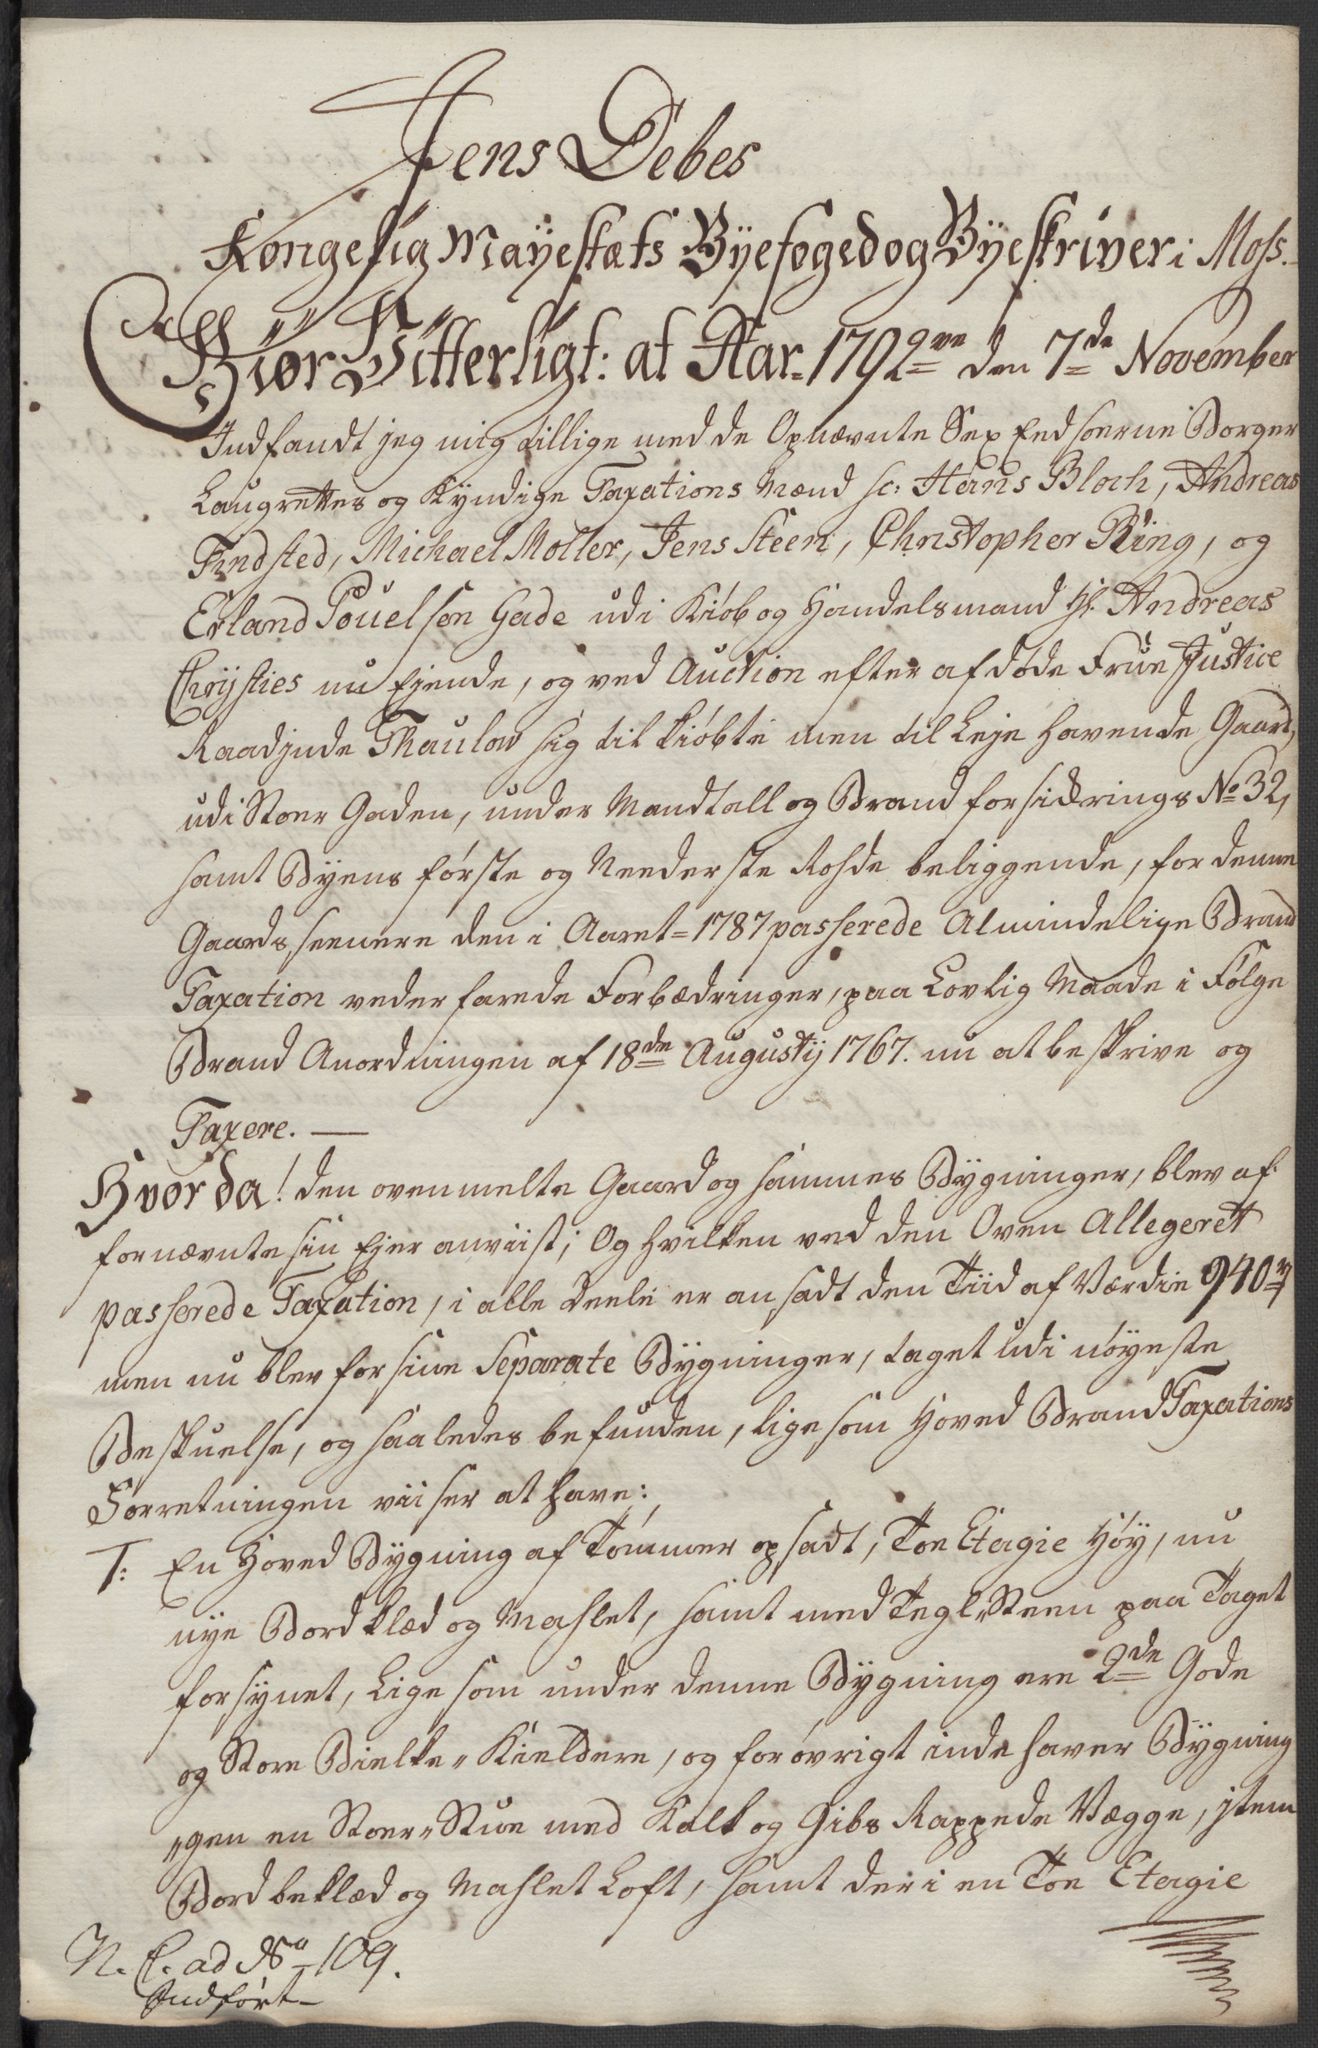 Jens Debes
Kongelig Mayestæts Byefoged og Byeskriver i Moss.
Giør Vitterligt: at Aar 1792ve den 7de November
Indfandt jeg mig tillige med de Opnævnte Sex Eedsorne Borger
Laugrettes og Kyndige Taxations Mænd sc: Hans Bloch, Andreas
Findsted, Michael Møller, Jens Steen, Christopher Ring, og
Erland Pouelsen Gade udi Kiøb og Handelsmand Hr. Andreas
Chrysties nu Ejende, og ved Auction efter afdøde Frue Justice
Raadjnde Thaulow sig til kiøbte men til Leje havende Gaard,
udi Stoer Gaden, under Mandtall og Brand forsickrings No 32,
samt Byens første og Nederste Rohde beliggende, for denne
Gaards seenere den i Aaret 1787 passerede Almindelige Brand
Taxation vederfarede Forbædringer, paa Lovlig Maade i Følge
Brand Anordningen af 18de Augustij 1767. nu at beskrive og
Taxere. —
Hvor da! den ovenmelte Gaard og sammes Bygninger, blev af
fornævnte sin Ejer anviist; Og hvilken ved den Oven Allegeret
passerede Taxation, i alle Deele er ansadt den Tiid af Værdie 940 rd
men nu blev for sine Separate Bygninger, taget udi nøyeste
Beskuelse, og saaledes befunden, ligesom Hoved Brand Taxations
Forretningen viiser at have:
1: En Hoved Bygning af Tømmer opsadt, Toe Etagie Høy, nu
nye Bordklæd og Mahlet, samt med Tegl Steen paa Taget
forsynet, Lige som under denne Bygning ere 2de Gode
og Store Bielke Kieldere, og for øvrigt inde haver Bygning
„gen en Stoer Stue med Kalk og Gibs Rappede Vægge, jtem
Bord beklæd og Mahlet Loft, samt deri en Toe Etagie
N. C. ad No 109.
Indført